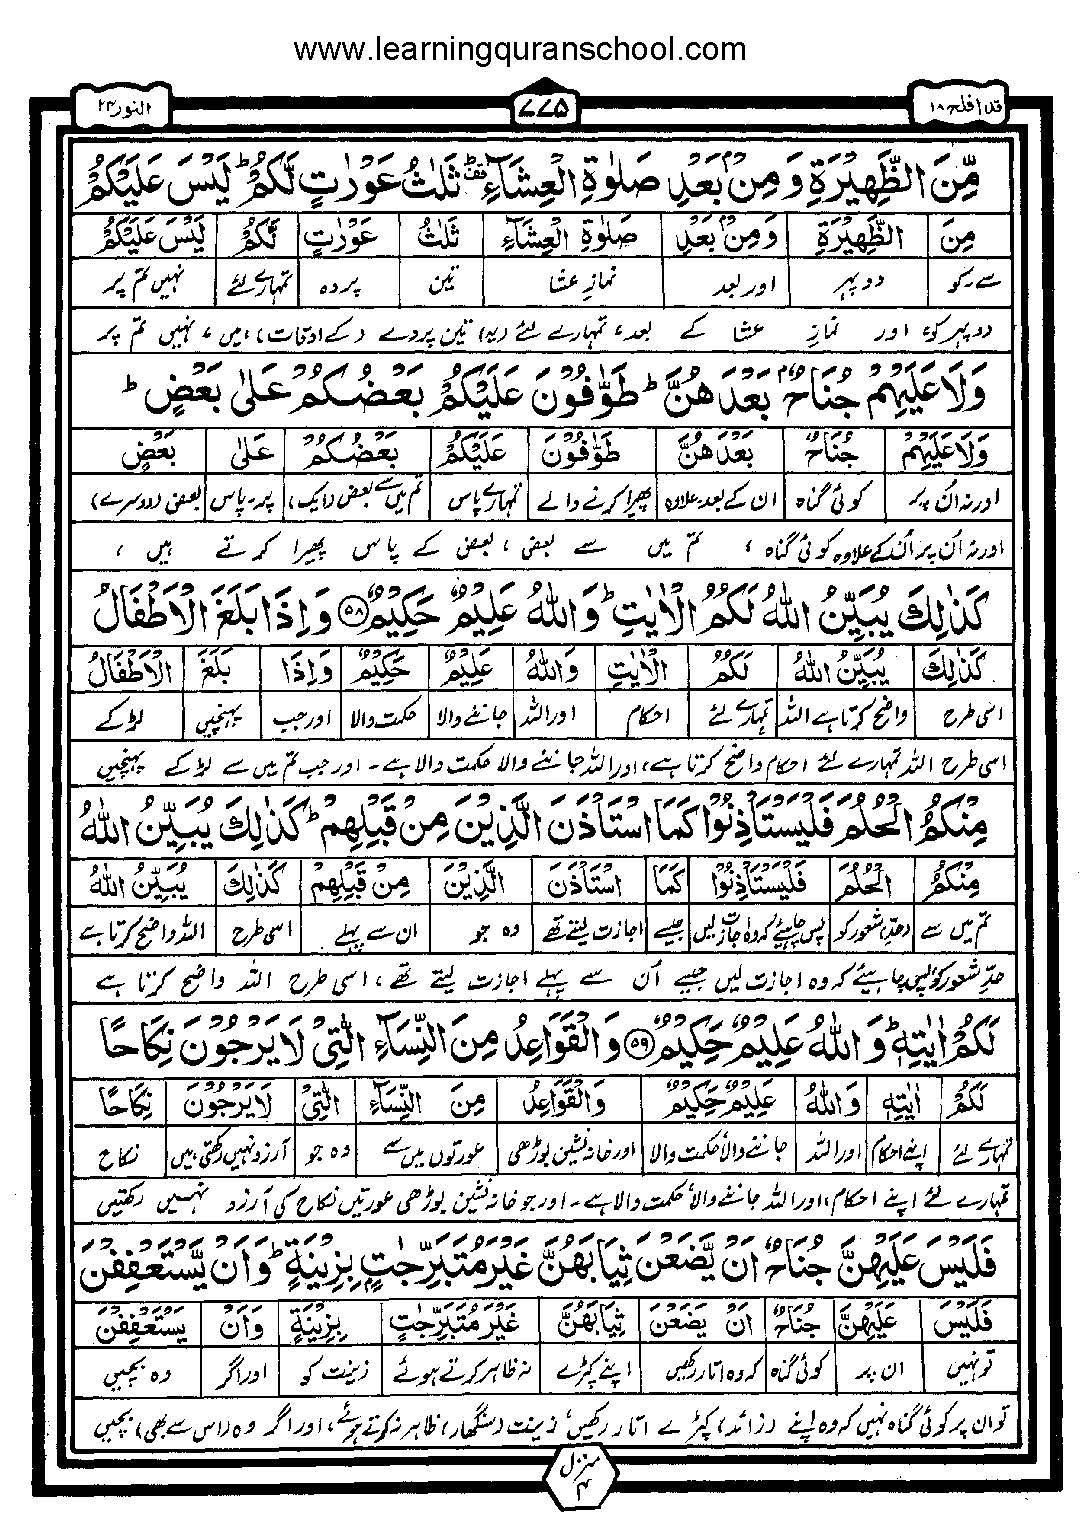 www.learningquranschool.com
قد افلح ۱۸
۷۷۵
النور ۲۴
مِّنَ الظَّهِيْرَةِ وَ مِنْۢ بَعْدِ صَلٰوةِ الْعِشَآءِ ؕ ثَلٰثُ عَوْرٰتٍ لَّكُمْ ؕ لَيْسَ عَلَيْكُمْ
مِنَ الظَّهِيْرَةِ وَمِنْۢ بَعْدِ صَلٰوةِ الْعِشَآءِ ثَلٰثُ عَوْرٰتٍ لَّكُمْ لَيْسَ عَلَيْكُمْ
سے۔کو دوپہر اور بعد نمازِ عشا تین پردہ تمہارے لئے نہیں تم پر
دوپہر کو، اور نماز عشا کے بعد، تمہارے لئے (یہ) تین پردے (کے اوقات) ہیں، نہیں تم پر
وَلَا عَلَيْهِمْ جُنَاحٌۢ بَعْدَهُنَّ ؕ طَوّٰفُوْنَ عَلَيْكُمْ بَعْضُكُمْ عَلٰى بَعْضٍ ؕ
وَلَا عَلَيْهِمْ جُنَاحٌۢ بَعْدَهُنَّ طَوّٰفُوْنَ عَلَيْكُمْ بَعْضُكُمْ عَلٰى بَعْضٍ
اور نہ ان پر کوئی گناہ ان کے بعد۔علاوہ پھرا کرنے والے تمہارے پاس تم میں سے بعض (ایک) پر۔پاس بعض (دوسرے)
اور نہ اُن پر اُن کے علاوہ کوئی گناہ ، تم میں سے بعض ، بعض کے پاس پھیرا کرتے ہیں ،
كَذٰلِكَ يُبَيِّنُ اللّٰهُ لَكُمُ الْاٰيٰتِ ؕ وَاللّٰهُ عَلِيْمٌ حَكِيْمٌ ۵۸ وَاِذَا بَلَغَ الْاَطْفَالُ
كَذٰلِكَ يُبَيِّنُ اللّٰهُ لَكُمُ الْاٰيٰتِ وَاللّٰهُ عَلِيْمٌ حَكِيْمٌ وَاِذَا بَلَغَ الْاَطْفَالُ
اسی طرح واضح کرتا ہے اللہ تمہارے لئے احکام اور اللہ جاننے والا حکمت والا اور جب پہنچیں لڑکے
اسی طرح اللہ تمہارے لئے احکام واضح کرتا ہے، اور اللہ جاننے والا حکمت والا ہے ۔ اور جب تم میں سے لڑکے پہنچیں
مِنْكُمُ الْحُلُمَ فَلْيَسْتَاْذِنُوْا كَمَا اسْتَاْذَنَ الَّذِيْنَ مِنْ قَبْلِهِمْ ؕ كَذٰلِكَ يُبَيِّنُ اللّٰهُ
مِنْكُمُ الْحُلُمَ فَلْيَسْتَاْذِنُوْا كَمَا اسْتَاْذَنَ الَّذِيْنَ مِنْ قَبْلِهِمْ كَذٰلِكَ يُبَيِّنُ اللّٰهُ
تم میں سے (حدِ) شعور کو پس چاہیئے کہ وہ اجازت لیں جیسے اجازت لیتے تھے وہ جو ان سے پہلے اسی طرح اللہ واضح کرتا ہے
حدِ شعور کو، پس چاہیئے کہ وہ اجازت لیں جیسے اُن سے پہلے اجازت لیتے تھے، اسی طرح اللہ واضح کرتا ہے
لَكُمْ اٰيٰتِهٖ ؕ وَاللّٰهُ عَلِيْمٌ حَكِيْمٌ ۵۹ وَالْقَوَاعِدُ مِنَ النِّسَآءِ الّٰتِيْ لَا يَرْجُوْنَ نِكَاحًا
لَكُمْ اٰيٰتِهٖ وَاللّٰهُ عَلِيْمٌ حَكِيْمٌ وَالْقَوَاعِدُ مِنَ النِّسَآءِ الّٰتِيْ لَا يَرْجُوْنَ نِكَاحًا
تمہارے لئے اپنے احکام اور اللہ جاننے والا، حکمت والا اور خانہ نشین بوڑھی عورتوں میں سے وہ جو آرزو نہیں رکھتی ہیں نکاح
تمہارے لئے اپنے احکام، اور اللہ جاننے والا، حکمت والا ہے ۔ اور جو خانہ نشین بوڑھی عورتیں نکاح کی آرزو نہیں رکھتیں
فَلَيْسَ عَلَيْهِنَّ جُنَاحٌ اَنْ يَّضَعْنَ ثِيَابَهُنَّ غَيْرَ مُتَبَرِّجٰتٍۭ بِزِيْنَةٍ ؕ وَاَنْ يَّسْتَعْفِفْنَ
فَلَيْسَ عَلَيْهِنَّ جُنَاحٌ اَنْ يَّضَعْنَ ثِيَابَهُنَّ غَيْرَ مُتَبَرِّجٰتٍ بِزِيْنَةٍ وَاَنْ يَسْتَعْفِفْنَ
تو نہیں ان پر کوئی گناہ کہ وہ اتار رکھیں اپنے کپڑے نہ ظاہر کرتے ہوئے زینت کو اور اگر وہ بچیں
تو ان پر کوئی گناہ نہیں کہ وہ اپنے (زائد) کپڑے اتار رکھیں، زینت (سنگھار) ظاہر نہ کرتے ہوئے، اور اگر وہ (اس سے بھی) بچیں
منزل ۴